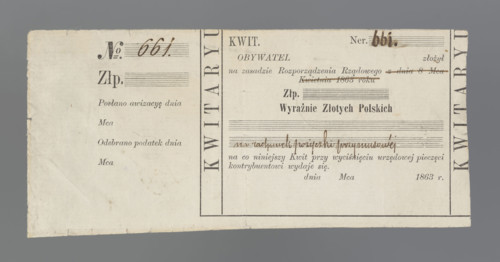 No. 661.
Złp.
Posłano awizacyę dnia
Mca
Odebrano podatek dnia
Mca
KWITARYU
KWIT. Ner. 661.
OBYWATEL złożył
na zasadzie Rozporządzenia Rządowego z dnia 8 Mca
Kwietnia 1863 roku
Złp.
Wyraźnie Złotych Polskich
na rachunek pożyczki przymusowej
na co niniejszy Kwit przy wyciśnięciu urzędowej pieczęci
kontrybuentowi wydaje się.
dnia Mca 1863 r.
KWITARYU